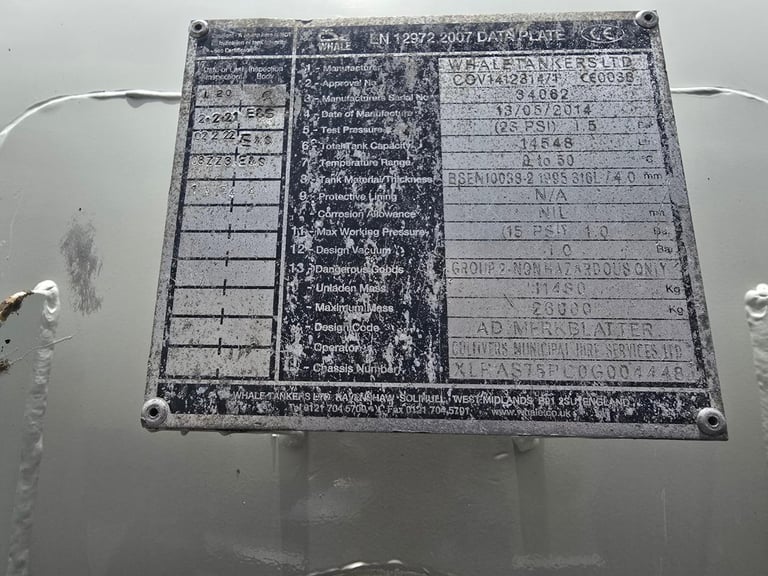 WHALE
EN 12972 2007 DATA PLATE
CE
see Certificate
Date of Last Inspection
Inspection Body
2.2.21 E&S
02.2.22 E&S
E&S
1 - Manufacturer WHALE TANKERS LTD
2 - Approval No CE0036
3 - Manufacturers Serial No 34062
4 - Date of Manufacture 13/05/2014
5 - Test Pressure (25 PSI) 1.5
6 - Total Tank Capacity 14548
7 - Temperature Range 0 to 50 °C
8 - Tank Material/Thickness 316L / 4.0 mm
9 - Protective Lining N/A
Corrosion Allowance NIL mm
11 - Max Working Pressure (15 PSI) 1.0 Bar
12 - Design Vacuum 1.0 Bar
13 - Dangerous Goods GROUP 2-NON HAZARDOUS ONLY
Unladen Mass 11480 Kg
Maximum Mass 26000 Kg
Design Code AD MERKBLATTER
Operator MUNICIPAL HIRE SERVICES LTD
Chassis Number
WHALE TANKERS LTD, RAVENSHAW, SOLIHULL, WEST MIDLANDS, B91 2SU ENGLAND
Tel 0121 704 5700 Fax 0121 704 5701 www.whale.co.uk